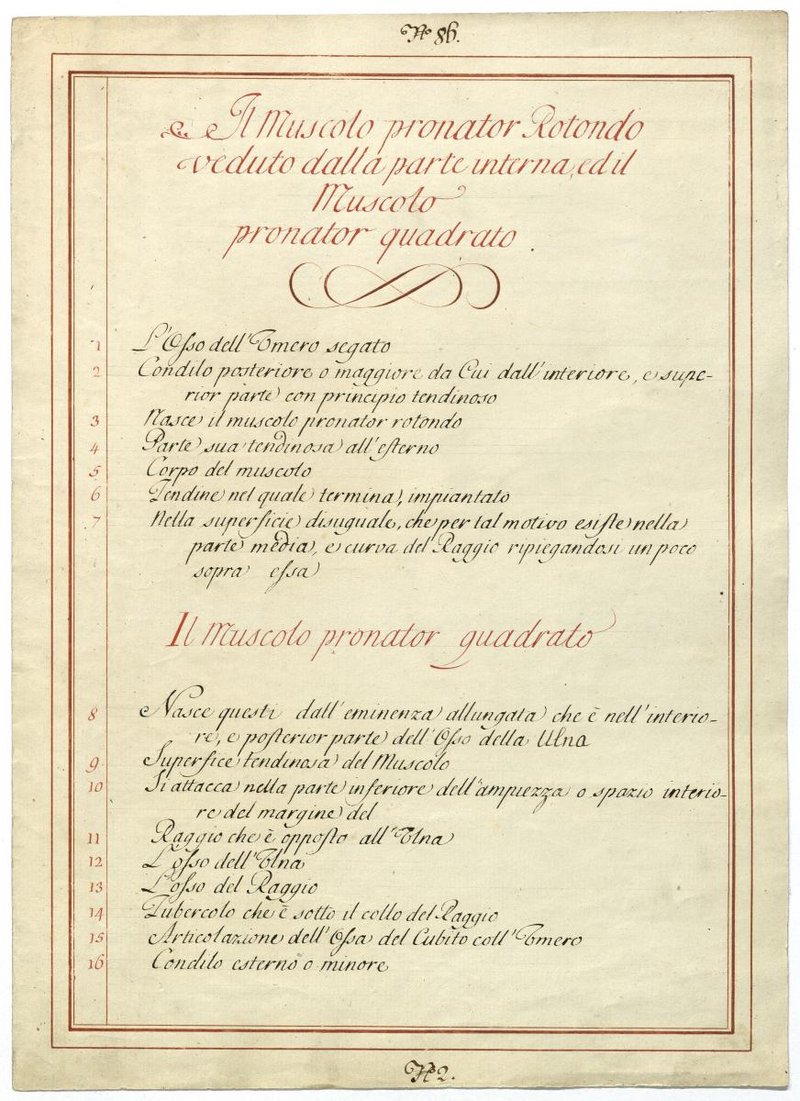 Nº 86.
Il Muscolo pronator Rotondo
veduto dalla parte interna, ed il
Muscolo
pronator quadrato.
1 L'Osso dell'Umero segato
2 Condilo posteriore o maggiore da Cui dall'interiore, e supe-
rior parte con principio tendinoso
3 Nasce il muscolo pronator rotondo
4 Parte sua tendinosa all'esterno
5 Corpo del muscolo
6 Tendine nel quale termina, impiantato
7 Nella superficie disuguale, che per tal motivo esiste nella
parte media, e curva del Raggio ripiegandosi un poco
sopra essa
Il Muscolo pronator quadrato
8 Nasce questi dall'eminenza allungata che è nell'interio-
re, e posterior parte dell'Osso della Ulna
9 Superfice tendinosa del Muscolo
10 Si attacca nella parte inferiore dell'ampiezza o spazio interio-
re del margine del
11 Raggio che è opposto all'Ulna
12 L'osso dell'Ulna
13 L'osso del Raggio
14 Tubercolo che è sotto il collo del Raggio
15 Articolazione dell'Ossa del Cubito coll'Umero
16 Condilo esterno o minore
Nº 2.